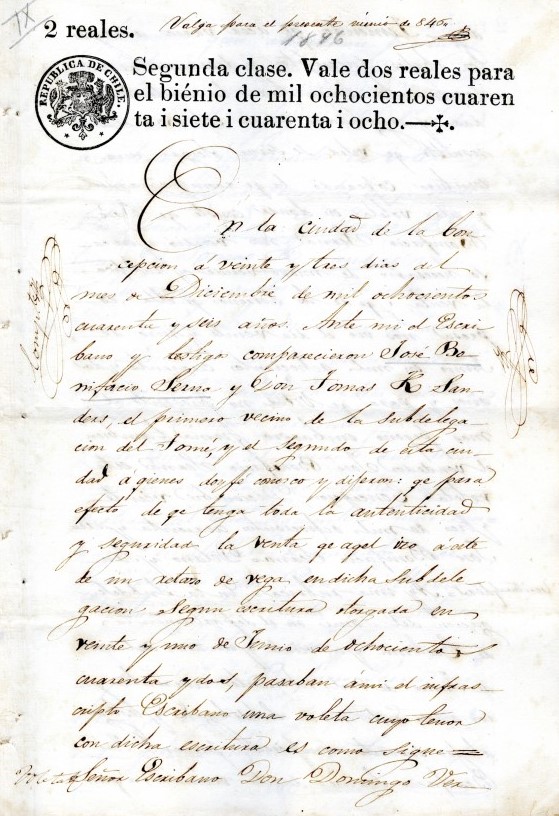 IX
2 reales.
Valga para el presente vienio de 846
1846
REPUBLICA DE CHILE.
Segunda clase. Vale dos reales para
el biénio de mil ochocientos cuaren
ta i siete i cuarenta i ocho.—
En la ciudad de la Con
cepcion á veinte y tres dias del
mes de Diciembre de mil ochocientos
cuarenta y seis años. Ante mi el Escri-
bano y testigos comparecieron José Bo-
nifacio Serna y Don Tomas K San-
ders, el primero vecino de la subdelega-
cion del Tomé, y el segundo de esta ciu-
dad á qienes doy fé conosco y dijeron: qe para
efecto de qe tenga toda la autenticidad
y seguridad la venta qe aqel izo á este
de un retazo de vega, en dicha Subdele-
gacion segun escritura otorgada en
veinte y uno de Junio de ochocientos
cuarenta y dos, pasaban á mi el infras-
cripto Escribano una voleta cuyo tenor
con dicha escritura es como sigue=
Señor Escribano Don Domingo Ver-